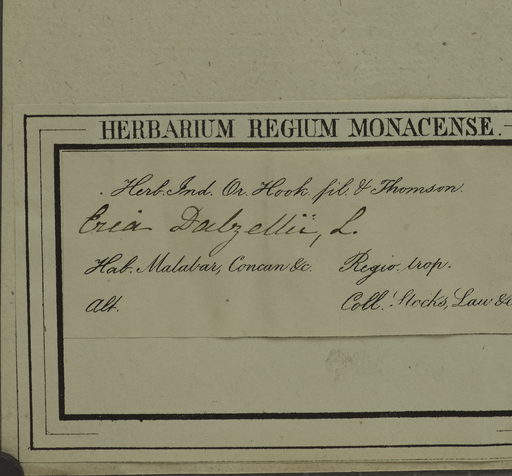 HERBARIUM REGIUM MONACENSE.
Herb. Ind. Or. Hook. fil. & Thomson.
Eria Dalzellii, L.
Hab. Malabar, Concan &c. Regio, trop.
Alt. Coll.! Stocks, Law &c